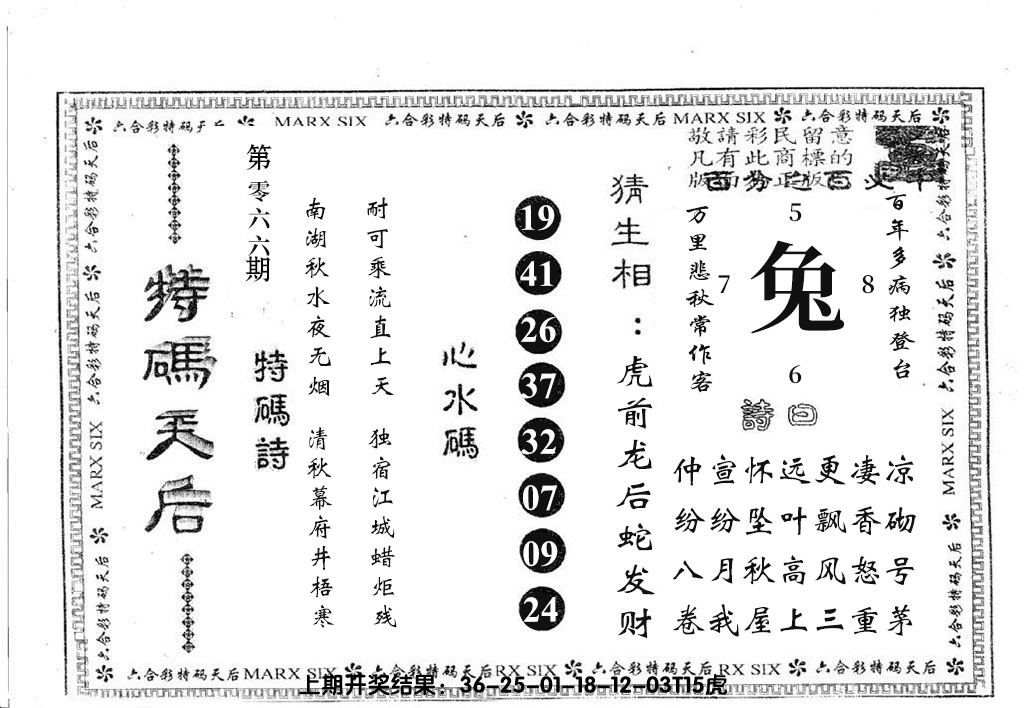 六合彩特码天后 MARX SIX 六合彩特码天后 六合彩特码天后 MARX SIX 六合彩特码天后
敬請彩民留意
凡有此商標的
版面為正版
特碼天后
第零六六期
特碼詩
南湖秋水夜无烟 清秋幕府井梧寒
耐可乘流直上天 独宿江城蜡炬残
心水碼
19
41
26
37
32
07
09
24
猜生相：虎前龙后蛇发财
万里悲秋常作客
5
7 兔 8
6
百年多病独登台
詩曰
仲宣怀远更凄凉
纷纷坠叶飘香砌
八月秋高风怒号
卷我屋上三重茅
六合彩特码天后 MARX SIX 六合彩特码天后
六合彩特码天后 MARX SIX 六合彩特码天后
六合彩特码天后 MARX SIX 六合彩特码天后 RX SIX 六合彩特码天后 RX SIX 六合彩特码天后
上期开奖结果：36-25-01-18-12-03T15虎